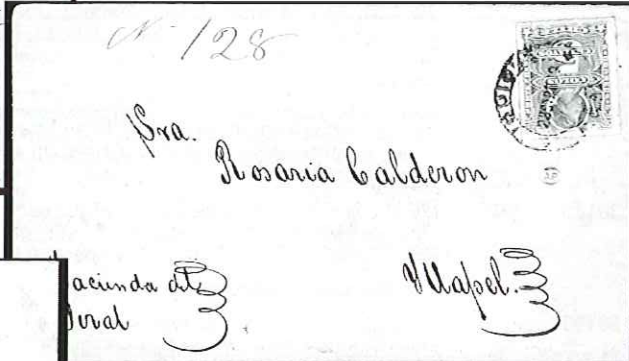 Nº 128
Sra.
Rosaria Calderon
acienda del
Yllapel.